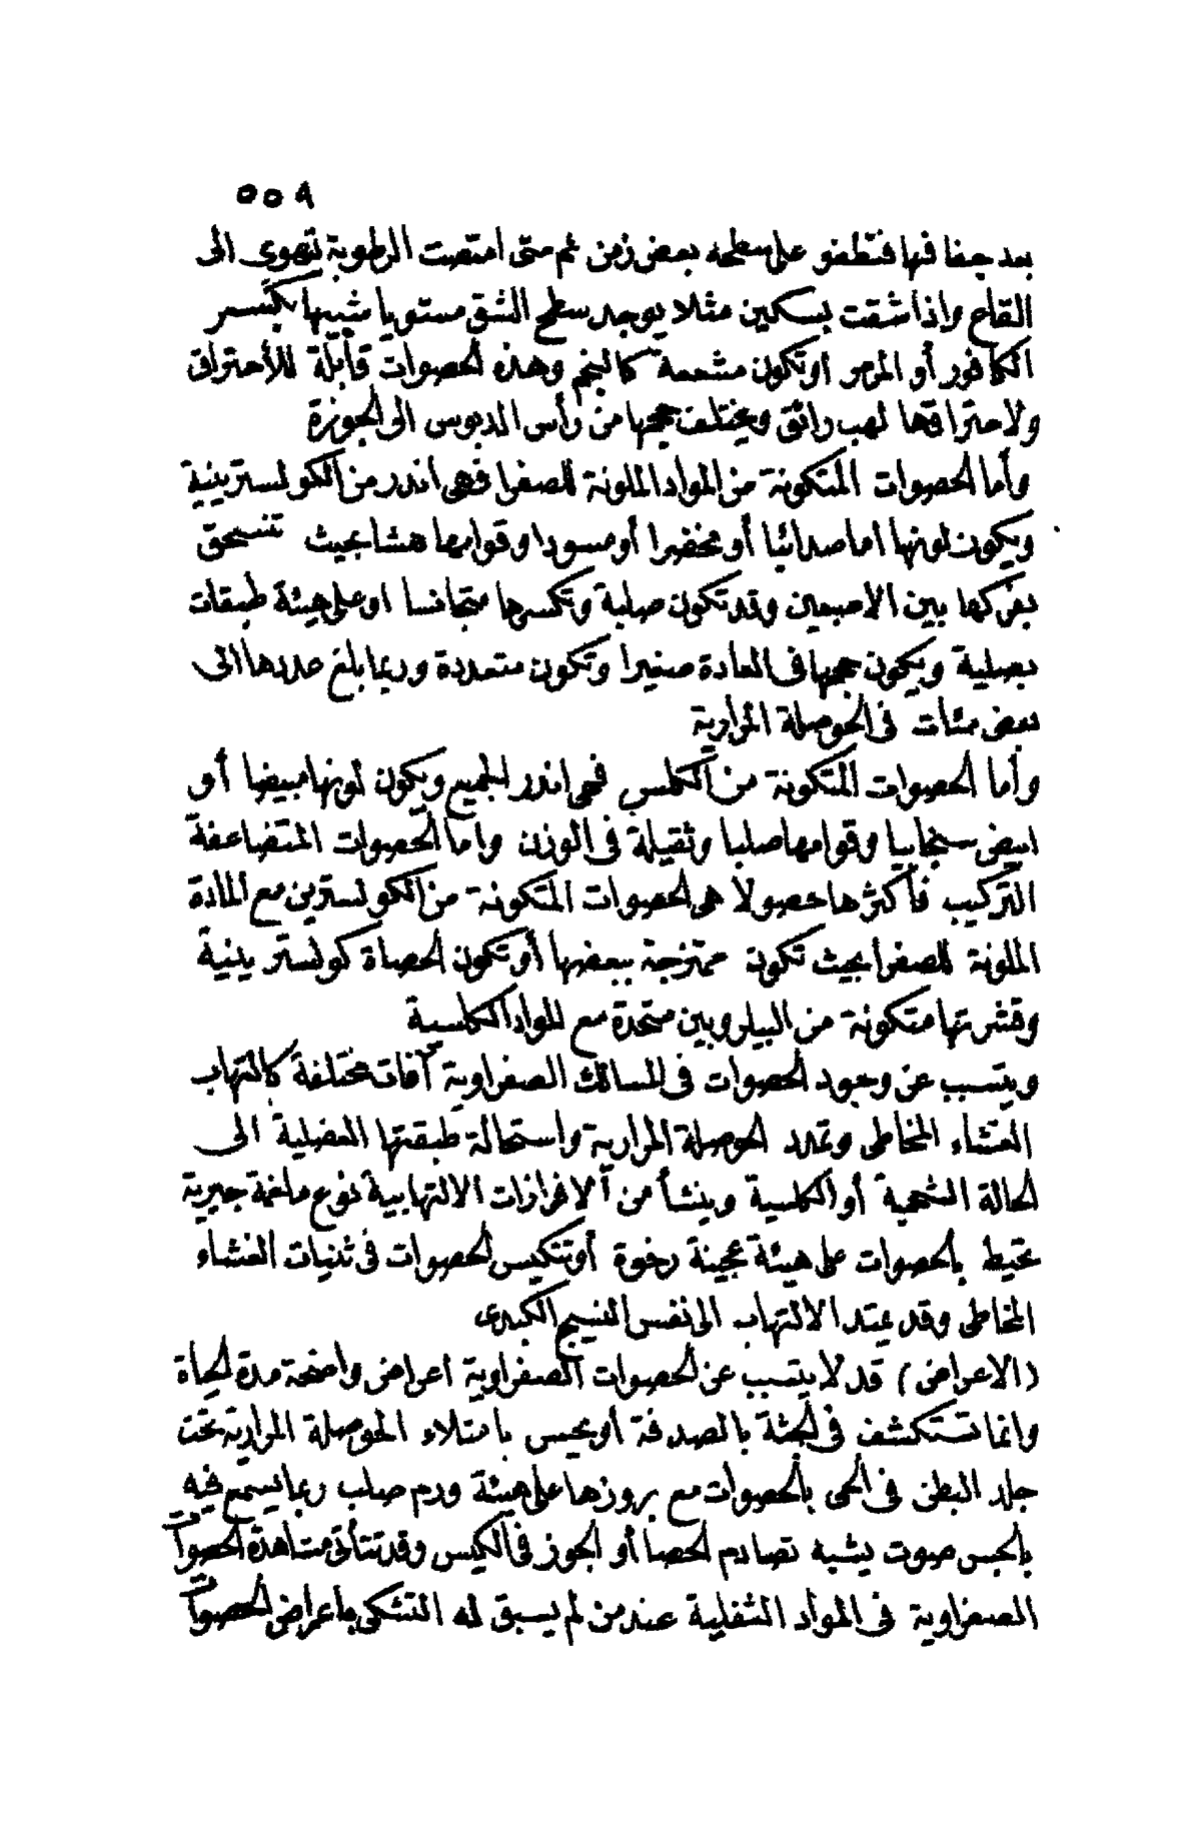 ٥٥٩
بعد جفافها فتطفو على سطحه بعض زمن ثم متى امتصت الرطوبة تهوى الى
القاع واذا شقت بسكين مثلا يوجد سطح الشق مستويا شبيها بكسر
الكافور أو المرمر أو تكون مشحمة وهذه الحصوات قابلة للأحتراق
ولاحتراقها لهب رائق ويختلف حجمها من رأس الدبوس الى الجوزة
وأما الحصوات المتكونة من المواد الملونة للصفرا فهى اندر من الكولسترينية
ويكون لونها اما صدائيا أو مخضرا أو مسودا وقوامها هشا بحيث تنسحق
بفركها بين الاصبعين وقد تكون صلبة وتكسرها متجانسا او على هيئة طبقات
بصلية ويكون حجمها فى العادة صغيرا وتكون متعددة وربما بلغ عددها الى
بعض مئات فى الحوصلة المرارية
وأما الحصوات المتكونة من الكلس فهى اندر الجميع ويكون لونها مبيضا أو
ابيض سنجابيا وقوامها صلبا وثقيلة فى الوزن واما الحصوات المتضاعفة
التركيب فأكثرها حصولا هى الحصوات المتكونة من الكولسترين مع المادة
الملونة للصفرا بحيث تكون ممتزجة ببعضها أو تكون الحصاة كولسترينية
وقشرتها متكونة من البيلروبين متحدة مع المواد الكلسية
ويتسبب عن وجود الحصوات فى المسالك الصفراوية آفات مختلفة كالتهاب
الغشاء المخاطى وتمدد الحوصلة المرارية واستحالة طبقتها العضلية الى
الحالة الشحمية أو الكلسية وينشأ من الافرازات الالتهابية نوع ملغمة جيرية
تحيط بالحصوات على هيئة عجينة رخوة أو تتكيس الحصوات فى ثنيات الغشاء
المخاطى وقد يمتد الالتهاب الى نفس النسيج الكبدى
(الاعراض) قد لا يتسبب عن الحصوات الصفراوية اعراض واضحة مدة الحياة
وانما تستكشف فى الجثة بالصدفة أو يحس بامتلاء الحوصلة المرارية تحت
جلد البطن فى الحى بالحصوات مع بروزها على هيئة ورم صلب ربما يسمع فيه
بالجس صوت يشبه تصادم الحصا أو الجوز فى الكيس وقد تتأتى مشاهدة الحصوات
الصفراوية فى المواد الثفلية عند من لم يسبق له التشكى باعراض الحصوات